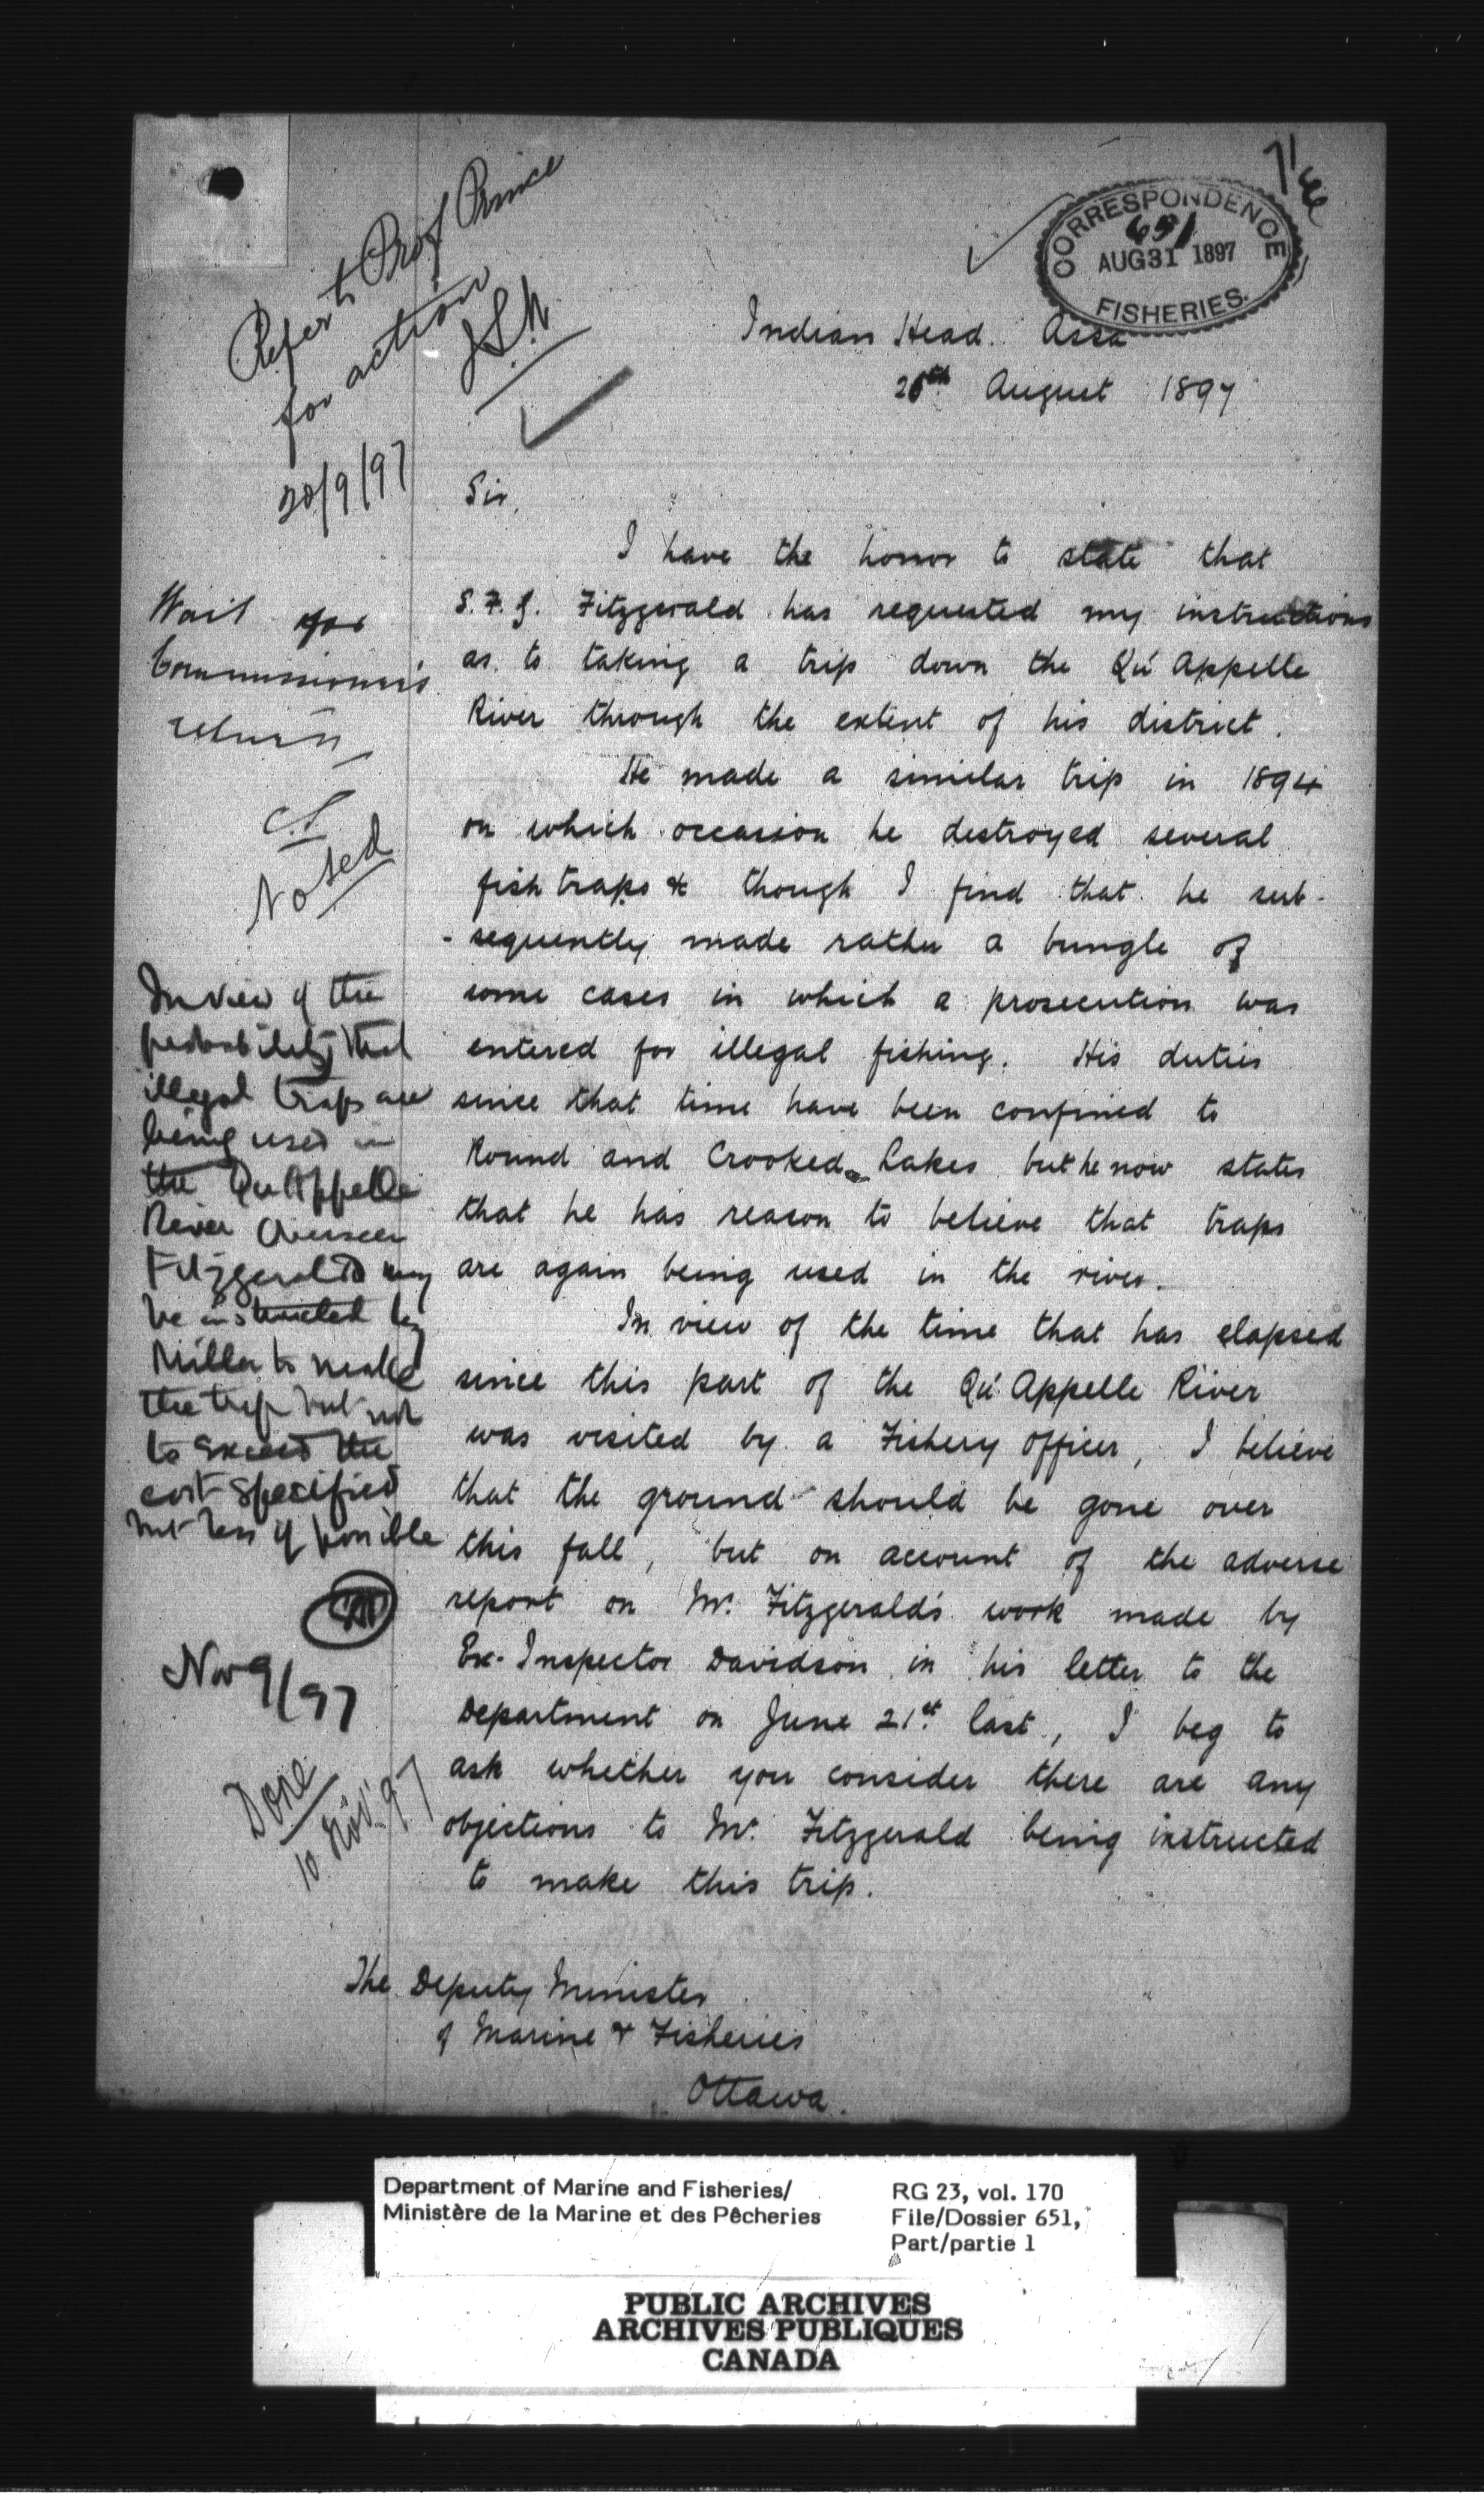 Refer to Prof Prince
for action
20/9/97
CORRESPONDENCE
651
AUG 31 1897
FISHERIES.
File
Indian Head. Assa
August 1897
Sir,
I have the honor to state that
S.F.J. Fitzgerald has requested my instructions
as to taking a trip down the Qu'Appelle
River through the extent of his district.
He made a similar trip in 1894
on which occasion he destroyed several
fish traps &c though I find that he sub-
-sequently made rather a bungle of
some cases in which a prosecution was
entered for illegal fishing. His duties
since that time have been confined to
Round and Crooked Lakes but he now states
that he has reason to believe that traps
are again being used in the river.
In view of the time that has elapsed
since this part of the Qu'Appelle River
was visited by a Fishery Officer, I believe
that the ground should be gone over
this fall, but on account of the adverse
report on Mr. Fitzgerald's work made by
Ex-Inspector Davidson in his letter to the
Department on June 21st last, I beg to
ask whether you consider there are any
objections to Mr. Fitzgerald being instructed
to make this trip.
The Deputy Minister
of Marine & Fisheries
Ottawa.
Wait for
Commissioner's
return
Noted
In view of the
probability that
illegal traps are
being used in
the Qu'Appelle
River Overseer
Fitzgerald may
be instructed by
Miller to make
the trip but not
to exceed the
cost specified
but less if possible
Nov 9/97
Done
10 Nov. 97
Department of Marine and Fisheries/
Ministère de la Marine et des Pêcheries
RG 23, vol. 170
File/Dossier 651,
Part/partie 1
PUBLIC ARCHIVES
ARCHIVES PUBLIQUES
CANADA